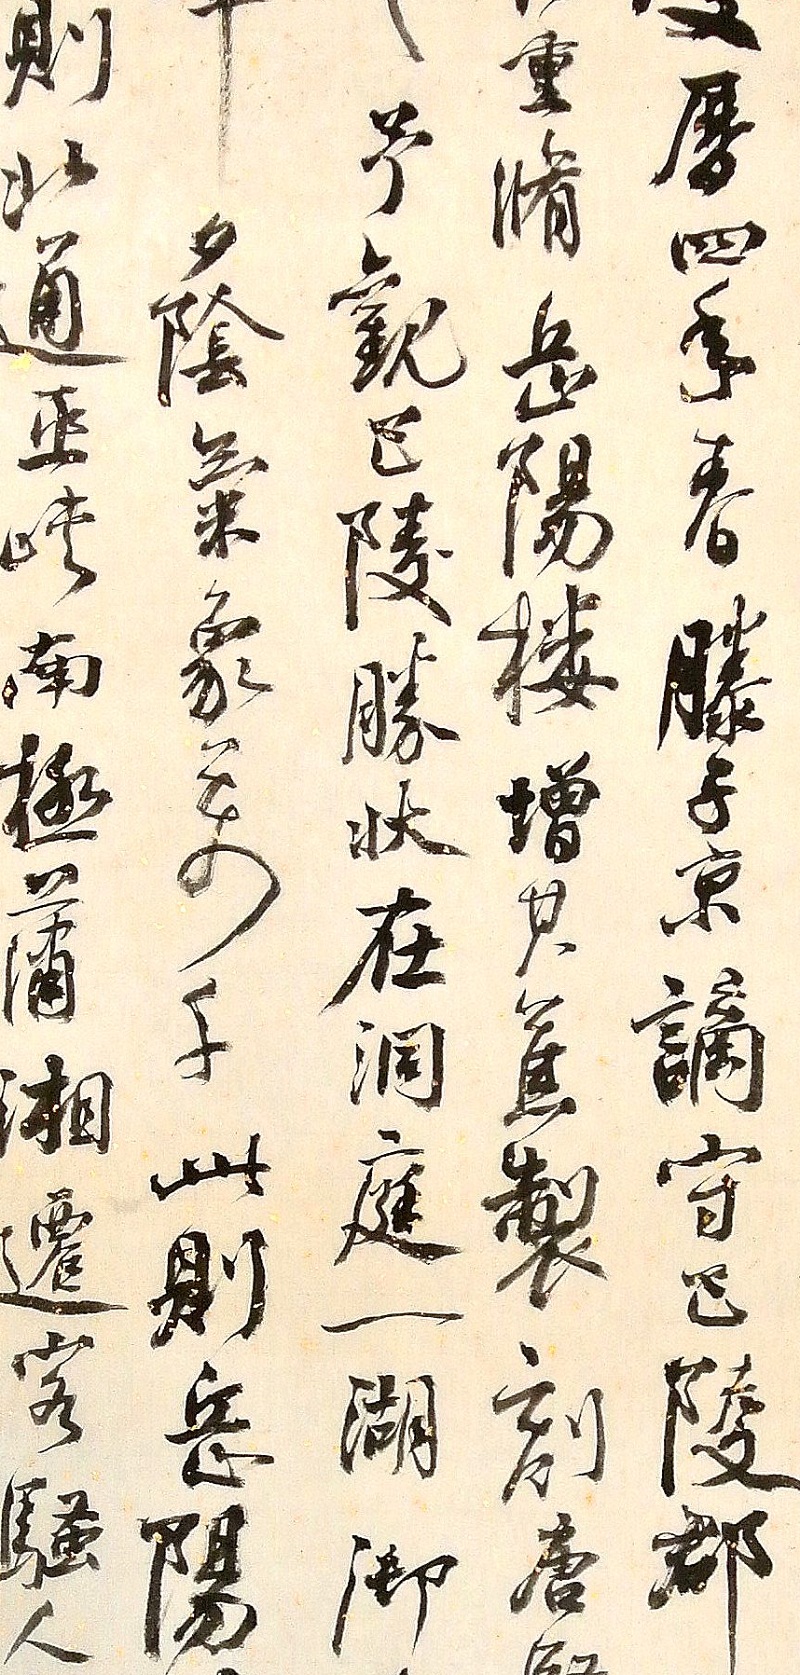 曆四年春滕子京謫守巴陵郡
重脩岳陽樓增其舊製刻唐賢
予觀巴陵勝狀在洞庭一湖銜
夕陰氣象萬千此則岳陽
則北通巫峽南極瀟湘遷客騷人